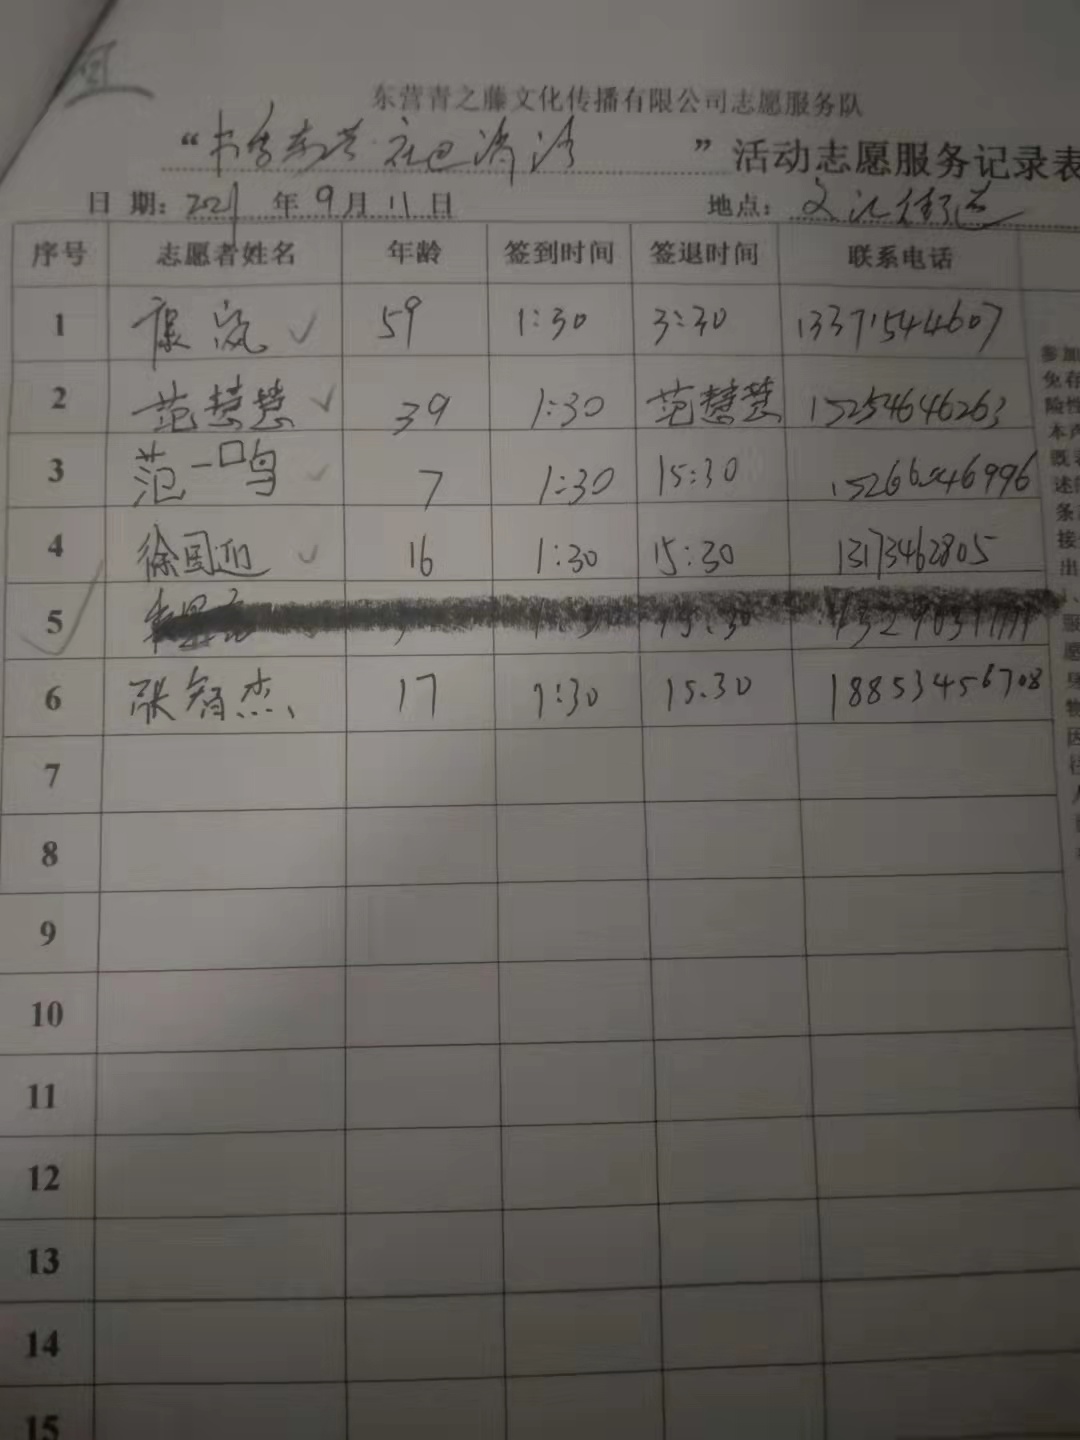 东营青之藤文化传播有限公司志愿服务队
“书香东营·社区清洁”活动志愿服务记录表
日 期: 2021 年 9 月 11 日 地点: 文汇街道
序号 志愿者姓名 年龄 签到时间 签退时间 联系电话
1 康岚 59 1:30 3:30 13371544607
2 范慧慧 39 1:30 范慧慧 15254646263
3 范一鸣 7 1:30 15:30 15266546996
4 徐国迪 16 1:30 15:30 13173462805
5 1:30 15:30
6 张智杰 17 1:30 15.30 18853456708
7
8
9
10
11
12
13
14
15
参加
免存
险性
本声
既表
述
条
接
出
愿
身
物
因
往